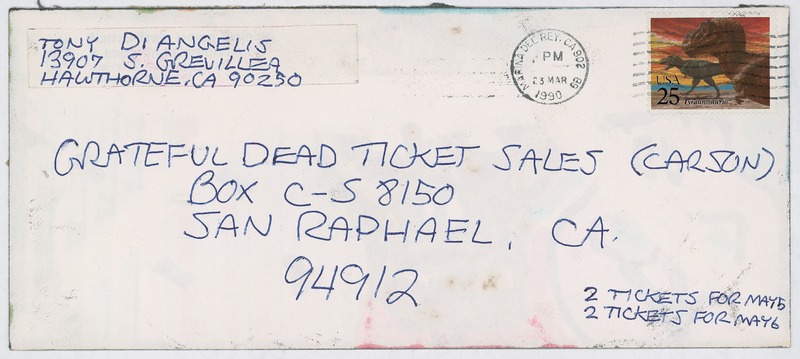 TONY DI ANGELIS
13907 S. GREVILLEA
HAWTHORNE, CA 90250
MARINA DEL REY, CA 902
PM
23 MAR
1990
USA
25
Tyrannosaurus
GRATEFUL DEAD TICKET SALES (CARSON)
BOX C-S 8150
SAN RAPHAEL, CA.
94912
2 TICKETS FOR MAY5
2 TICKETS FOR MAY6